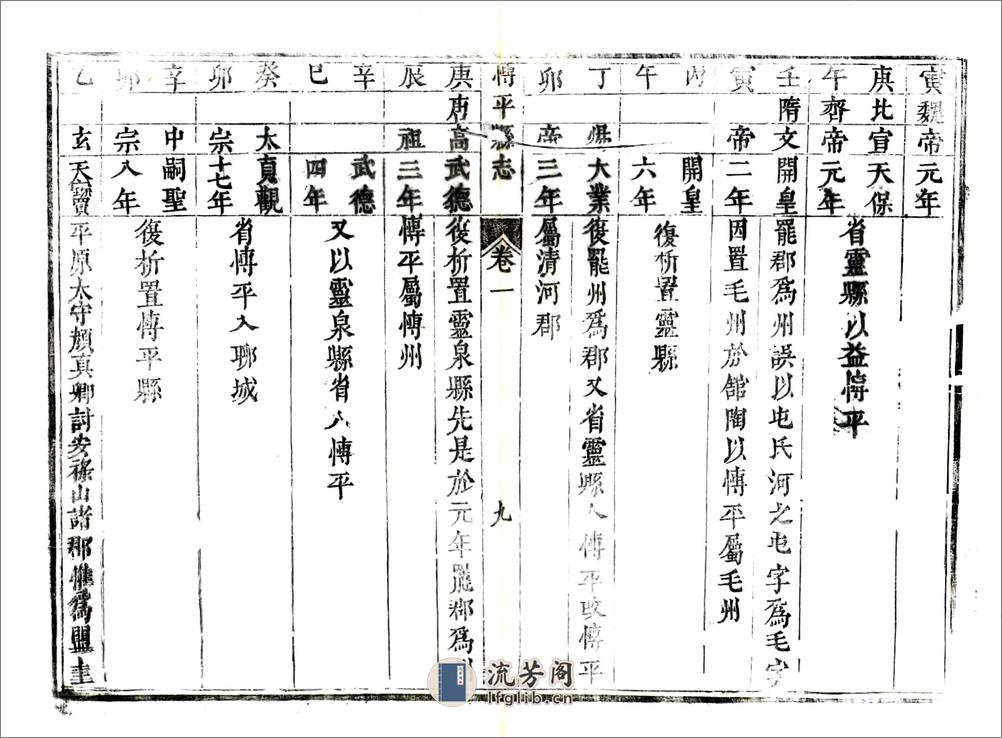 寅魏帝元年
庚北宣天保
午齊帝元年
省靈縣以益博平
壬隋文開皇罷郡爲州誤以屯氏河之屯字爲毛字
寅帝二年因置毛州於舘陶以博平屬毛州
丙開皇
午六年
復析置靈縣
丁煬大業復罷州爲郡又省靈縣入博平改博平
卯帝三年屬清河郡
博平縣志
卷一
九
庚唐高武德復析置靈泉縣先是於元年罷郡爲州
辰祖三年博平屬博州
辛武德
巳四年
又以靈泉縣省入博平
癸太貞觀
卯宗十七年
省博平入聊城
辛中嗣聖
卯宗八年
復析置博平縣
乙玄天寶平原太守顏真卿討安祿山諸郡推爲盟主
流芳阁
lfglib.cn